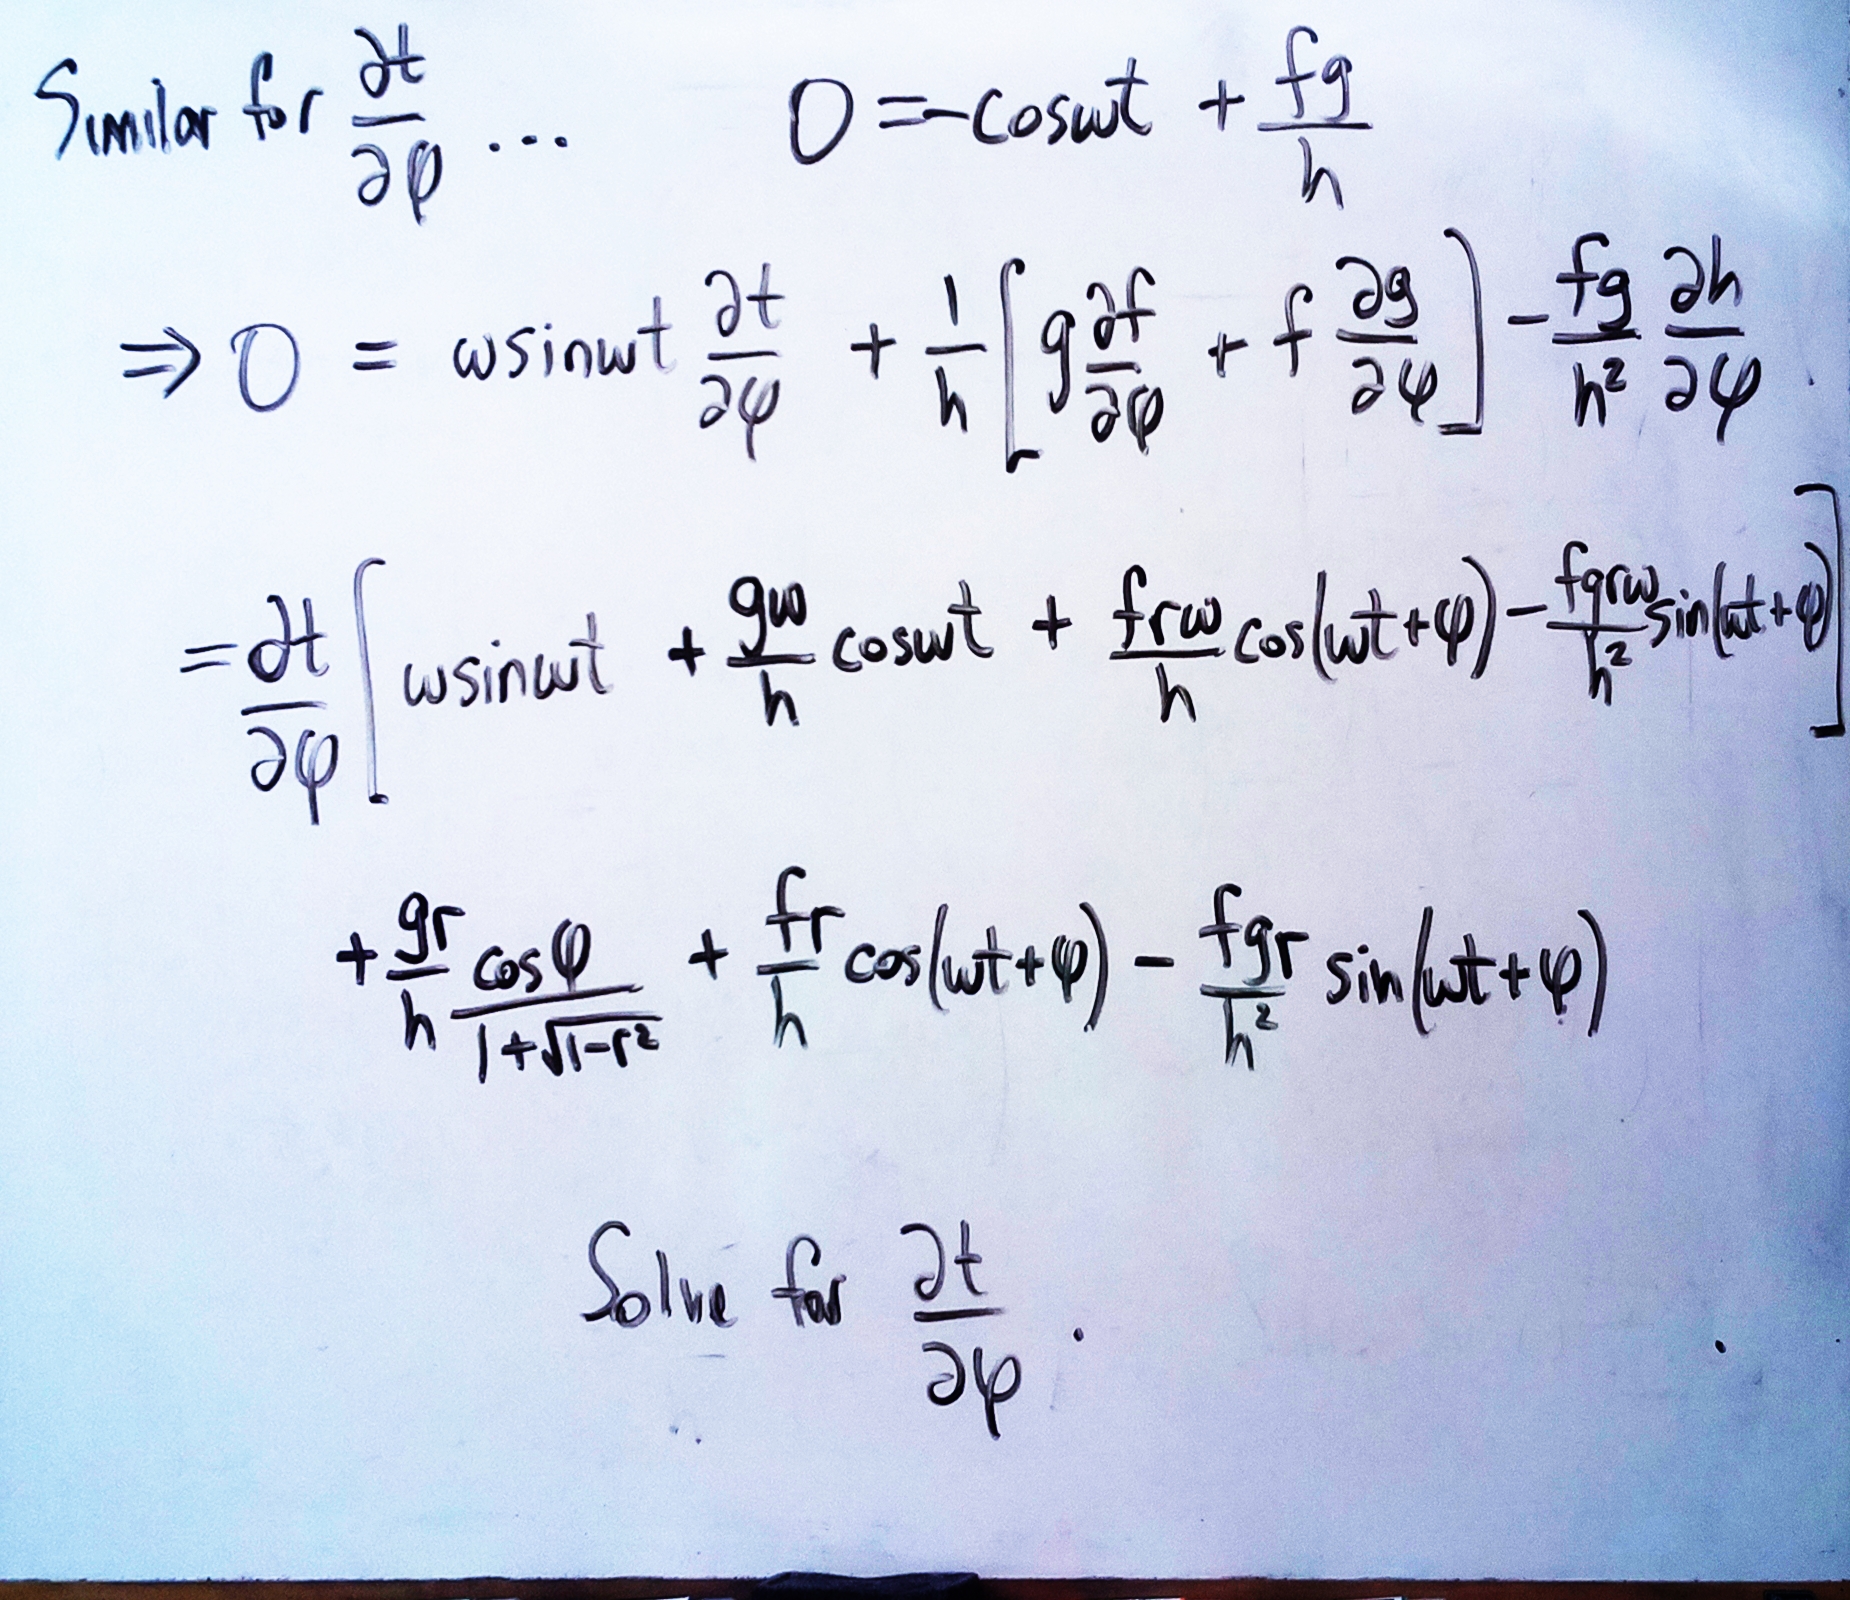 Similar for ∂t/∂φ ... 0 = -cosωt + fg/h
⇒ 0 = ωsinωt ∂t/∂φ + 1/h [g ∂f/∂φ + f ∂g/∂φ] - fg/h² ∂h/∂φ
= ∂t/∂φ [ωsinωt + gω/h cosωt + frω/h cos(ωt+φ) - fgrω/h² sin(ωt+φ)]
+ gr/h cosφ/(1+√(1-r²)) + fr/h cos(ωt+φ) - fgr/h² sin(ωt+φ)
Solve for ∂t/∂φ .